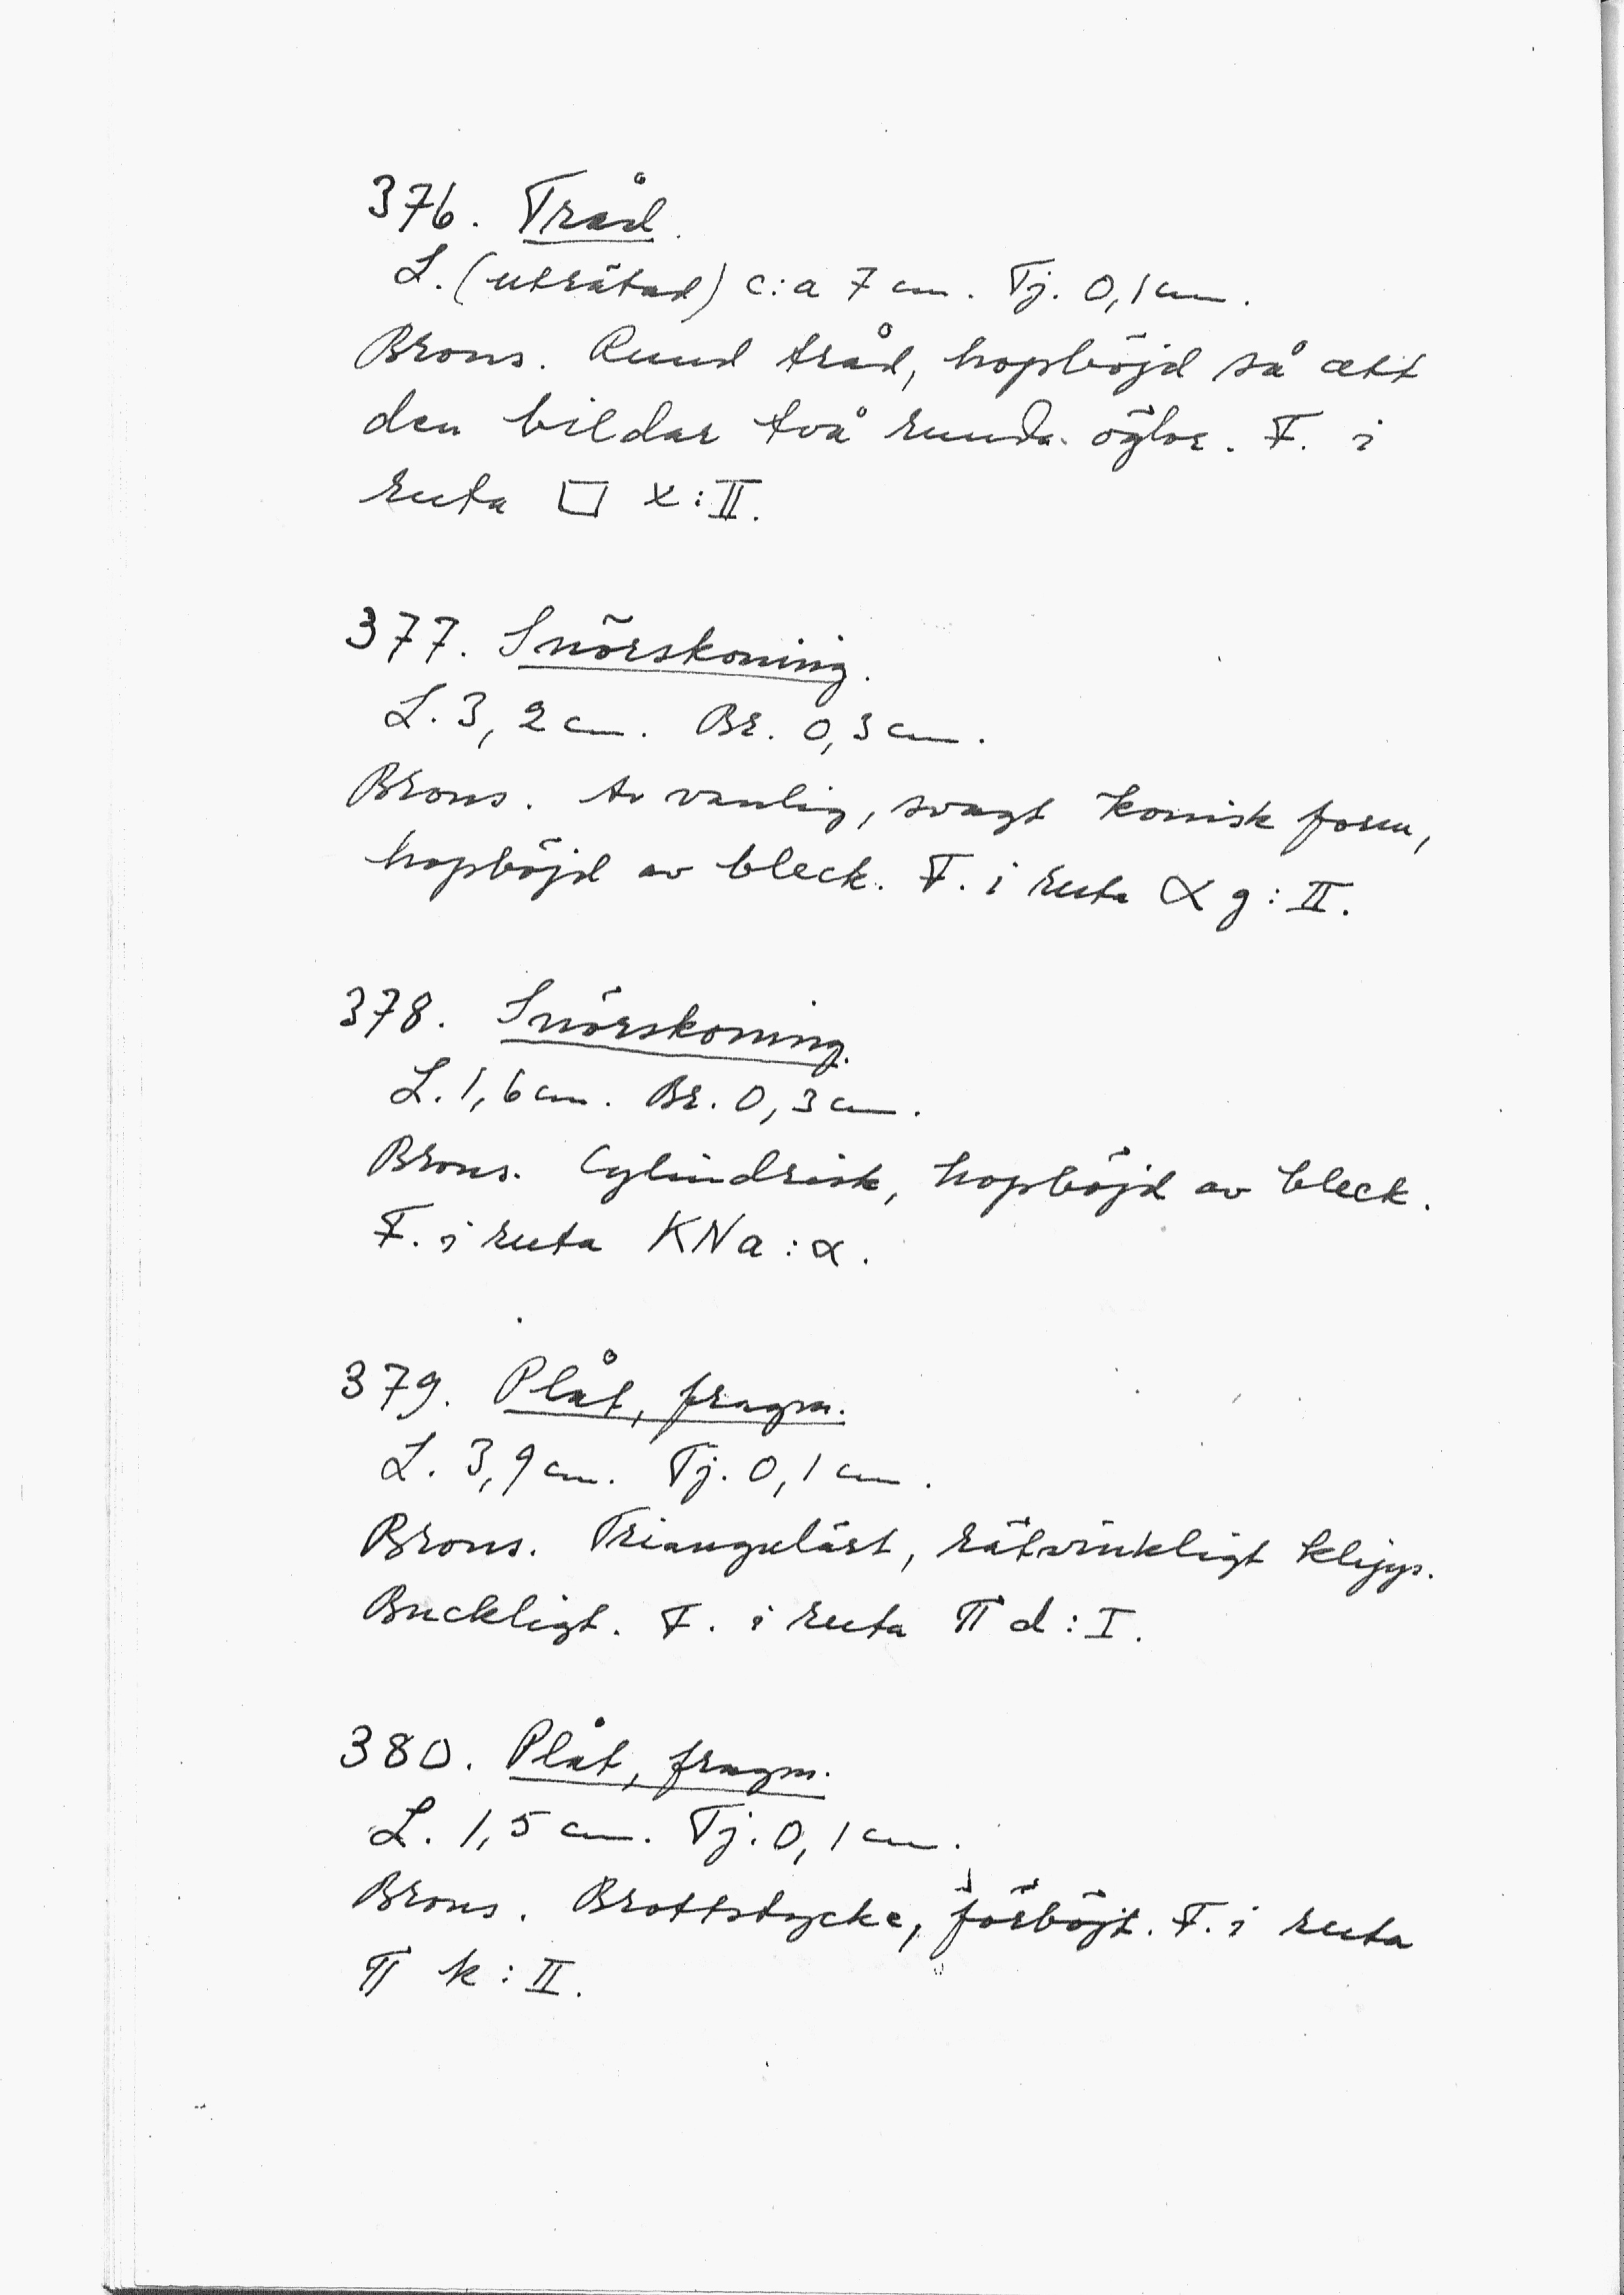 376. Tråd.
L. (uträtad) c:a 7 cm. Tj. 0,1 cm.
Brons. Rund tråd, hopböjd så att
den bildar två runda öglor. F. i
ruta □ x:II.
377. Snörskoning.
L. 3,2 cm. Br. 0,3 cm.
Brons. Av vanlig, svagt konisk form,
hopböjd av bleck. F. i ruta α g:II.
378. Snörskoning.
L. 1,6 cm. Br. 0,3 cm.
Brons. Cylindrisk, hopböjd av bleck.
F. i ruta KNa:α.
379. Plåt, fragm.
L. 3,9 cm. Tj. 0,1 cm.
Brons. Triangulärt, rätvinkligt klipp.
Buckligt. F. i ruta π d:I.
380. Plåt, fragm.
L. 1,5 cm. Tj. 0,1 cm.
Brons. Brottstycke, förböjt. F. i ruta
π k:II.